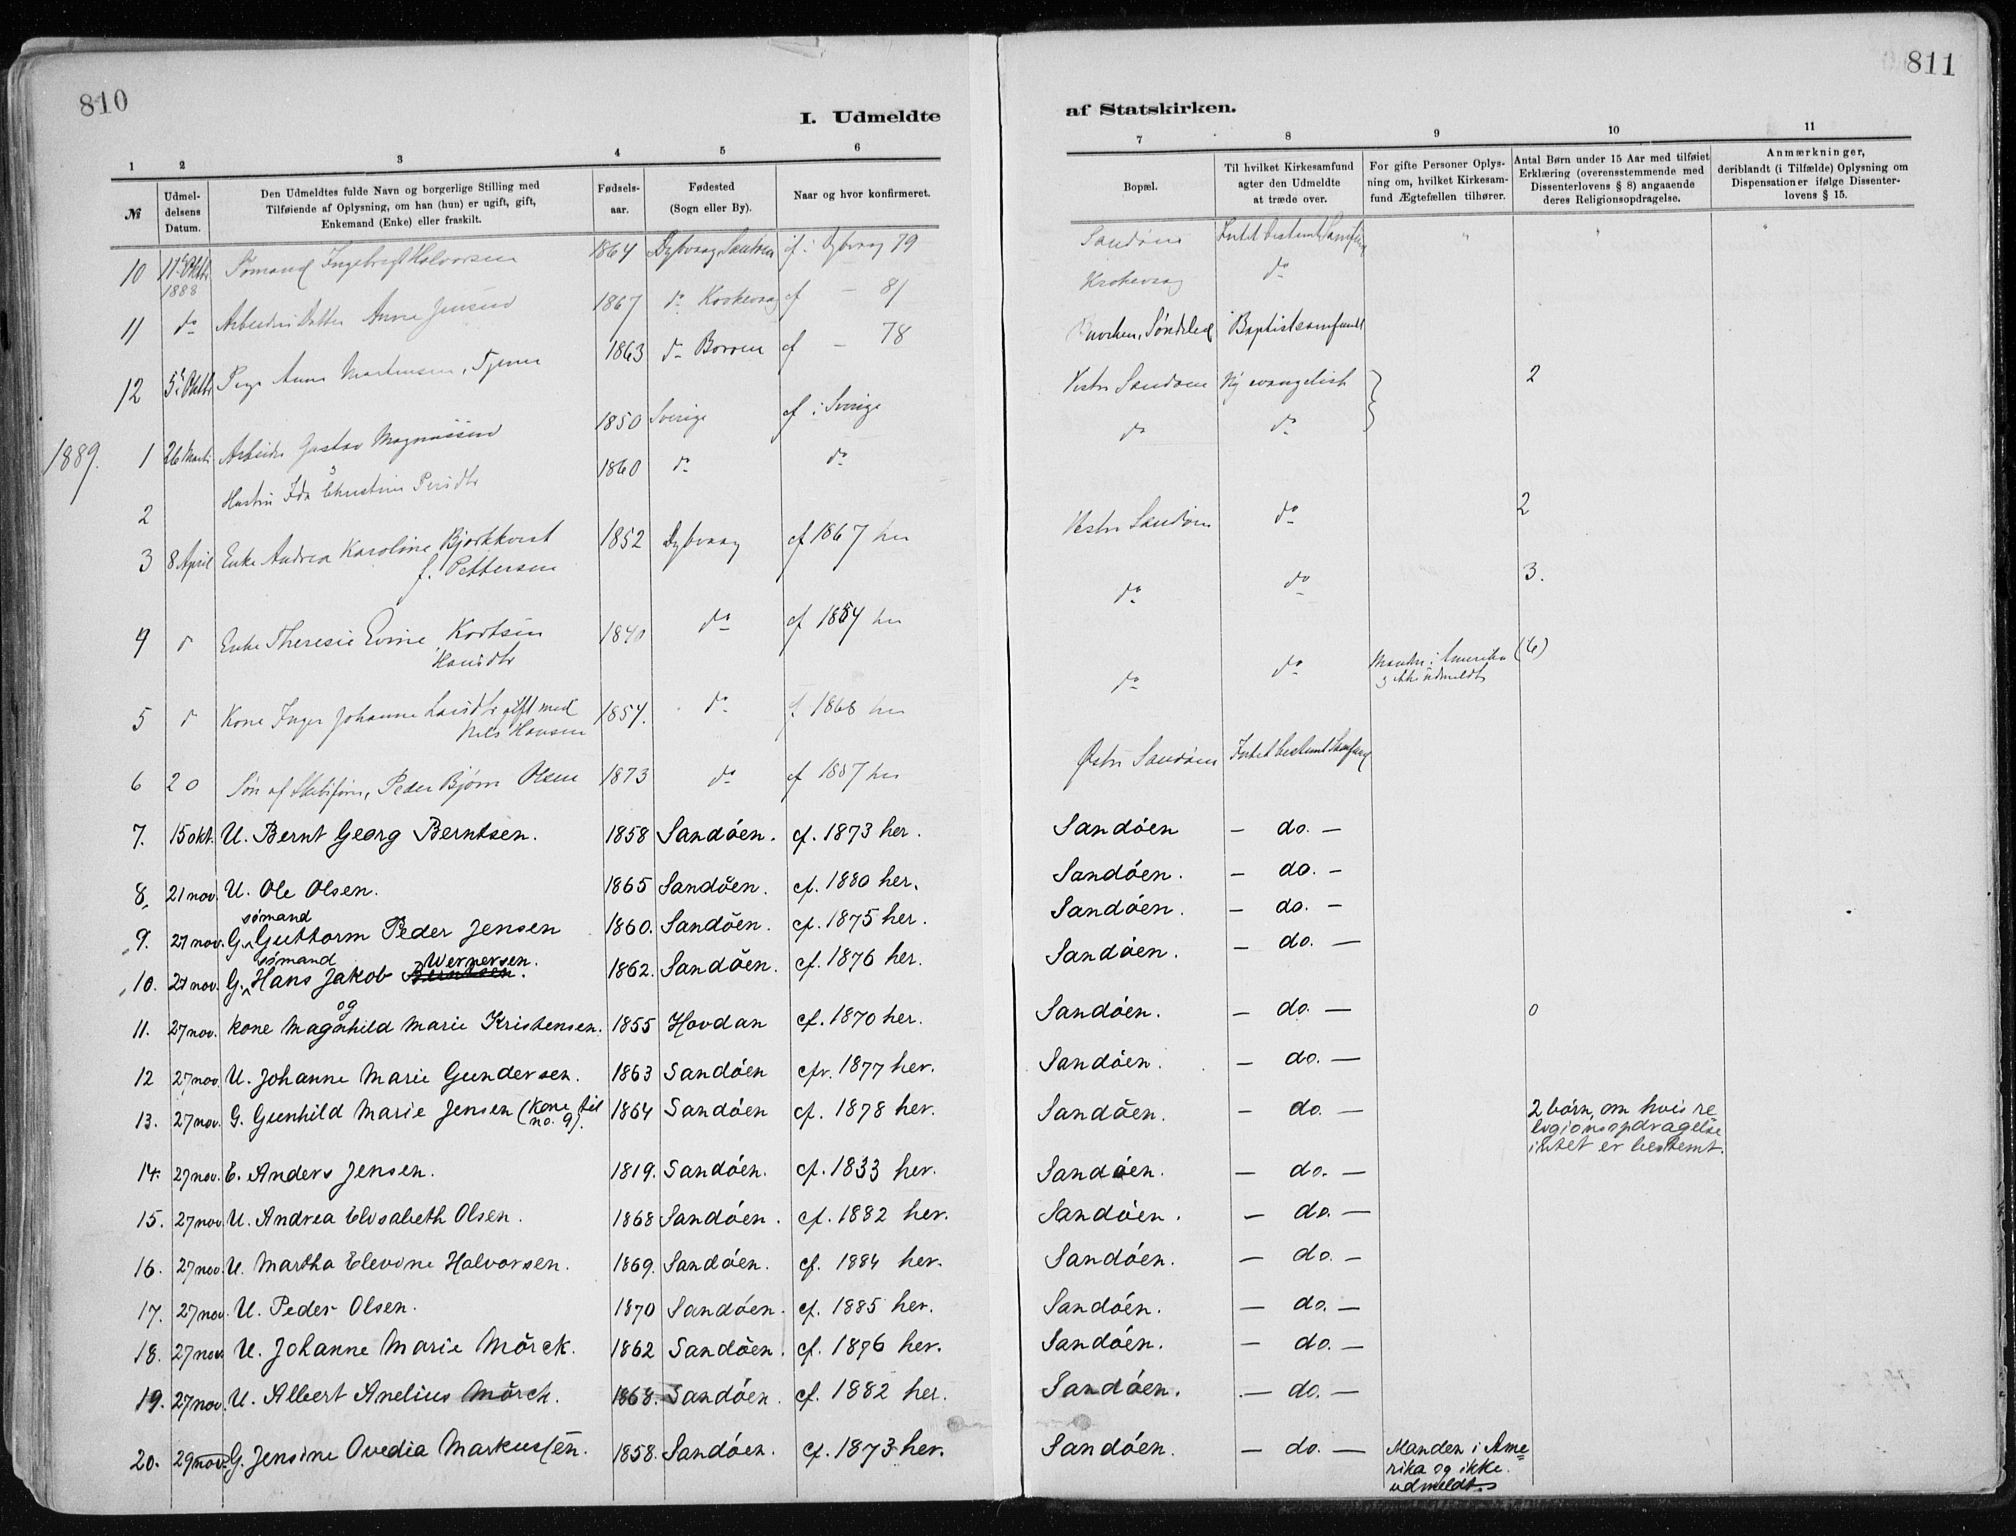 810
811
I. Udmeldte
af Statskirken.
1 2 3 4 5 6
7 8 9 10 11
№
Udmel-
delsens
Datum.
Den Udmeldtes fulde Navn og borgerlige Stilling med
Tilføiende af Oplysning, om han (hun) er ugift, gift,
Enkemand (Enke) eller fraskilt.
Fødsels-
aar.
Fødested
(Sogn eller By).
Naar og hvor konfirmeret.
Bopæl.
Til hvilket Kirkesamfund
agter den Udmeldte
at træde over.
For gifte Personer Oplys-
ning om, hvilket Kirkesam-
fund Ægtefællen tilhører.
Antal Børn under 15 Aar med tilføiet
Erklæring (overensstemmende med
Dissenterlovens § 8) angaaende
deres Religionsopdragelse.
Anmærkninger,
deriblandt (i Tilfælde) Oplysning om
Dispensationer ifølge Dissenter-
lovens § 15.
10 17 Oktbr 1888 Sømand Ingebregt Halvorsen 1864 Dybvaag Sandøen cf i Dybvaag 79 Sandøen Intet bestemt Samfund
11 do Arbeiders Datter Anne Jensen 1867 do Krokevaag cf — 81 Krokevaag do
12 5 Oktbr Pige Anne Mortensen, Tjener 1863 do Borøen cf — 78 Søndeled Baptistsamfundt
1889.
1 26 Marts Arbeider Gustav Magnussen 1850 Sverige cf i Sverige Vestre Sandøen Ny evangelisk 2
2 Hustru Ida Christine Persdtr 1860 do do do do
3 8 April Enke Andrea Karoline Bjorkkvist
f. Pettersen 1852 Dybvaag cf 1867 her Vestre Sandøen do 2
4 d Enke Theresie Evine Kortsen
Hansdtr 1840 do cf 1854 her do do 3.
5 d Kone Inger Johanne Larsdtr gift med
Nils Hansen 1854. do f. 1868 her do do Manden i Amerika
og ikke udmeldt (6)
6 20 Søn af Skibsfører, Peder Bjørn Olsen 1873 do cf 1887 her Østre Sandøen Intet bestemt Samfund
7. 15 okt. U. Bernt Georg Berntsen. 1858 Sandöen. cf. 1873 her. Sandöen — do. —
8. 21 nov. U. Ole Olsen. 1865 Sandöen. cf. 1880 her. Sandöen. — do. —
sømand
9. 27 nov. G. Guttorm Peder Jensen 1860. Sandöen. cf. 1875 her. Sandöen. — do. —
sømand Wernersen.
10. 27 nov. G. Hans Jakob Berntsen. 1862. Sandöen. cf. 1876 her. Sandöen. — do. —
og
11. 27 nov. kone Magnhild Marie Kristensen. 1855 Hovdan cf. 1870 her. Sandöen. — do. — 0
12 27 nov. U. Johanne Marie Gundersen. 1863 Sandöen cfr. 1877 her. Sandöen. — do. —
13. 27 nov. G. Gunhild Marie Jensen (Kone til
no. 9). 1864 Sandöen cf. 1878 her. Sandöen. — do. — 2 børn, om hvis re
ligionsopdragelse
intet er bestemt.
14. 27 nov. E. Anders Jensen. 1819. Sandöen. cf. 1833 her. Sandöen. — do. —
15. 27 nov. U. Andrea Elisabeth Olsen. 1868 Sandöen. cf. 1882 her. Sandöen. — do. —
16. 27 nov. U. Martha Elevine Halvorsen. 1869. Sandöen. cf. 1884 her. Sandöen. — do. —
17. 27 nov. U. Peder Olsen. 1870 Sandöen. cf. 1885 her. Sandöen. — do. —
18. 27 nov. U. Johanne Marie Mörck. 1862 Sandöen. cf. 1876 her. Sandöen. — do. —
19. 27 nov. U. Albert Anelius Mörck. 1868. Sandöen. cf. 1882 her. Sandöen. — do. —
20. 29 nov. G. Jensine Ovedia Markussen. 1858. Sandöen. cf. 1873 her. Sandöen. — do. — Manden i Ame
rika og ikke
udmeldt.